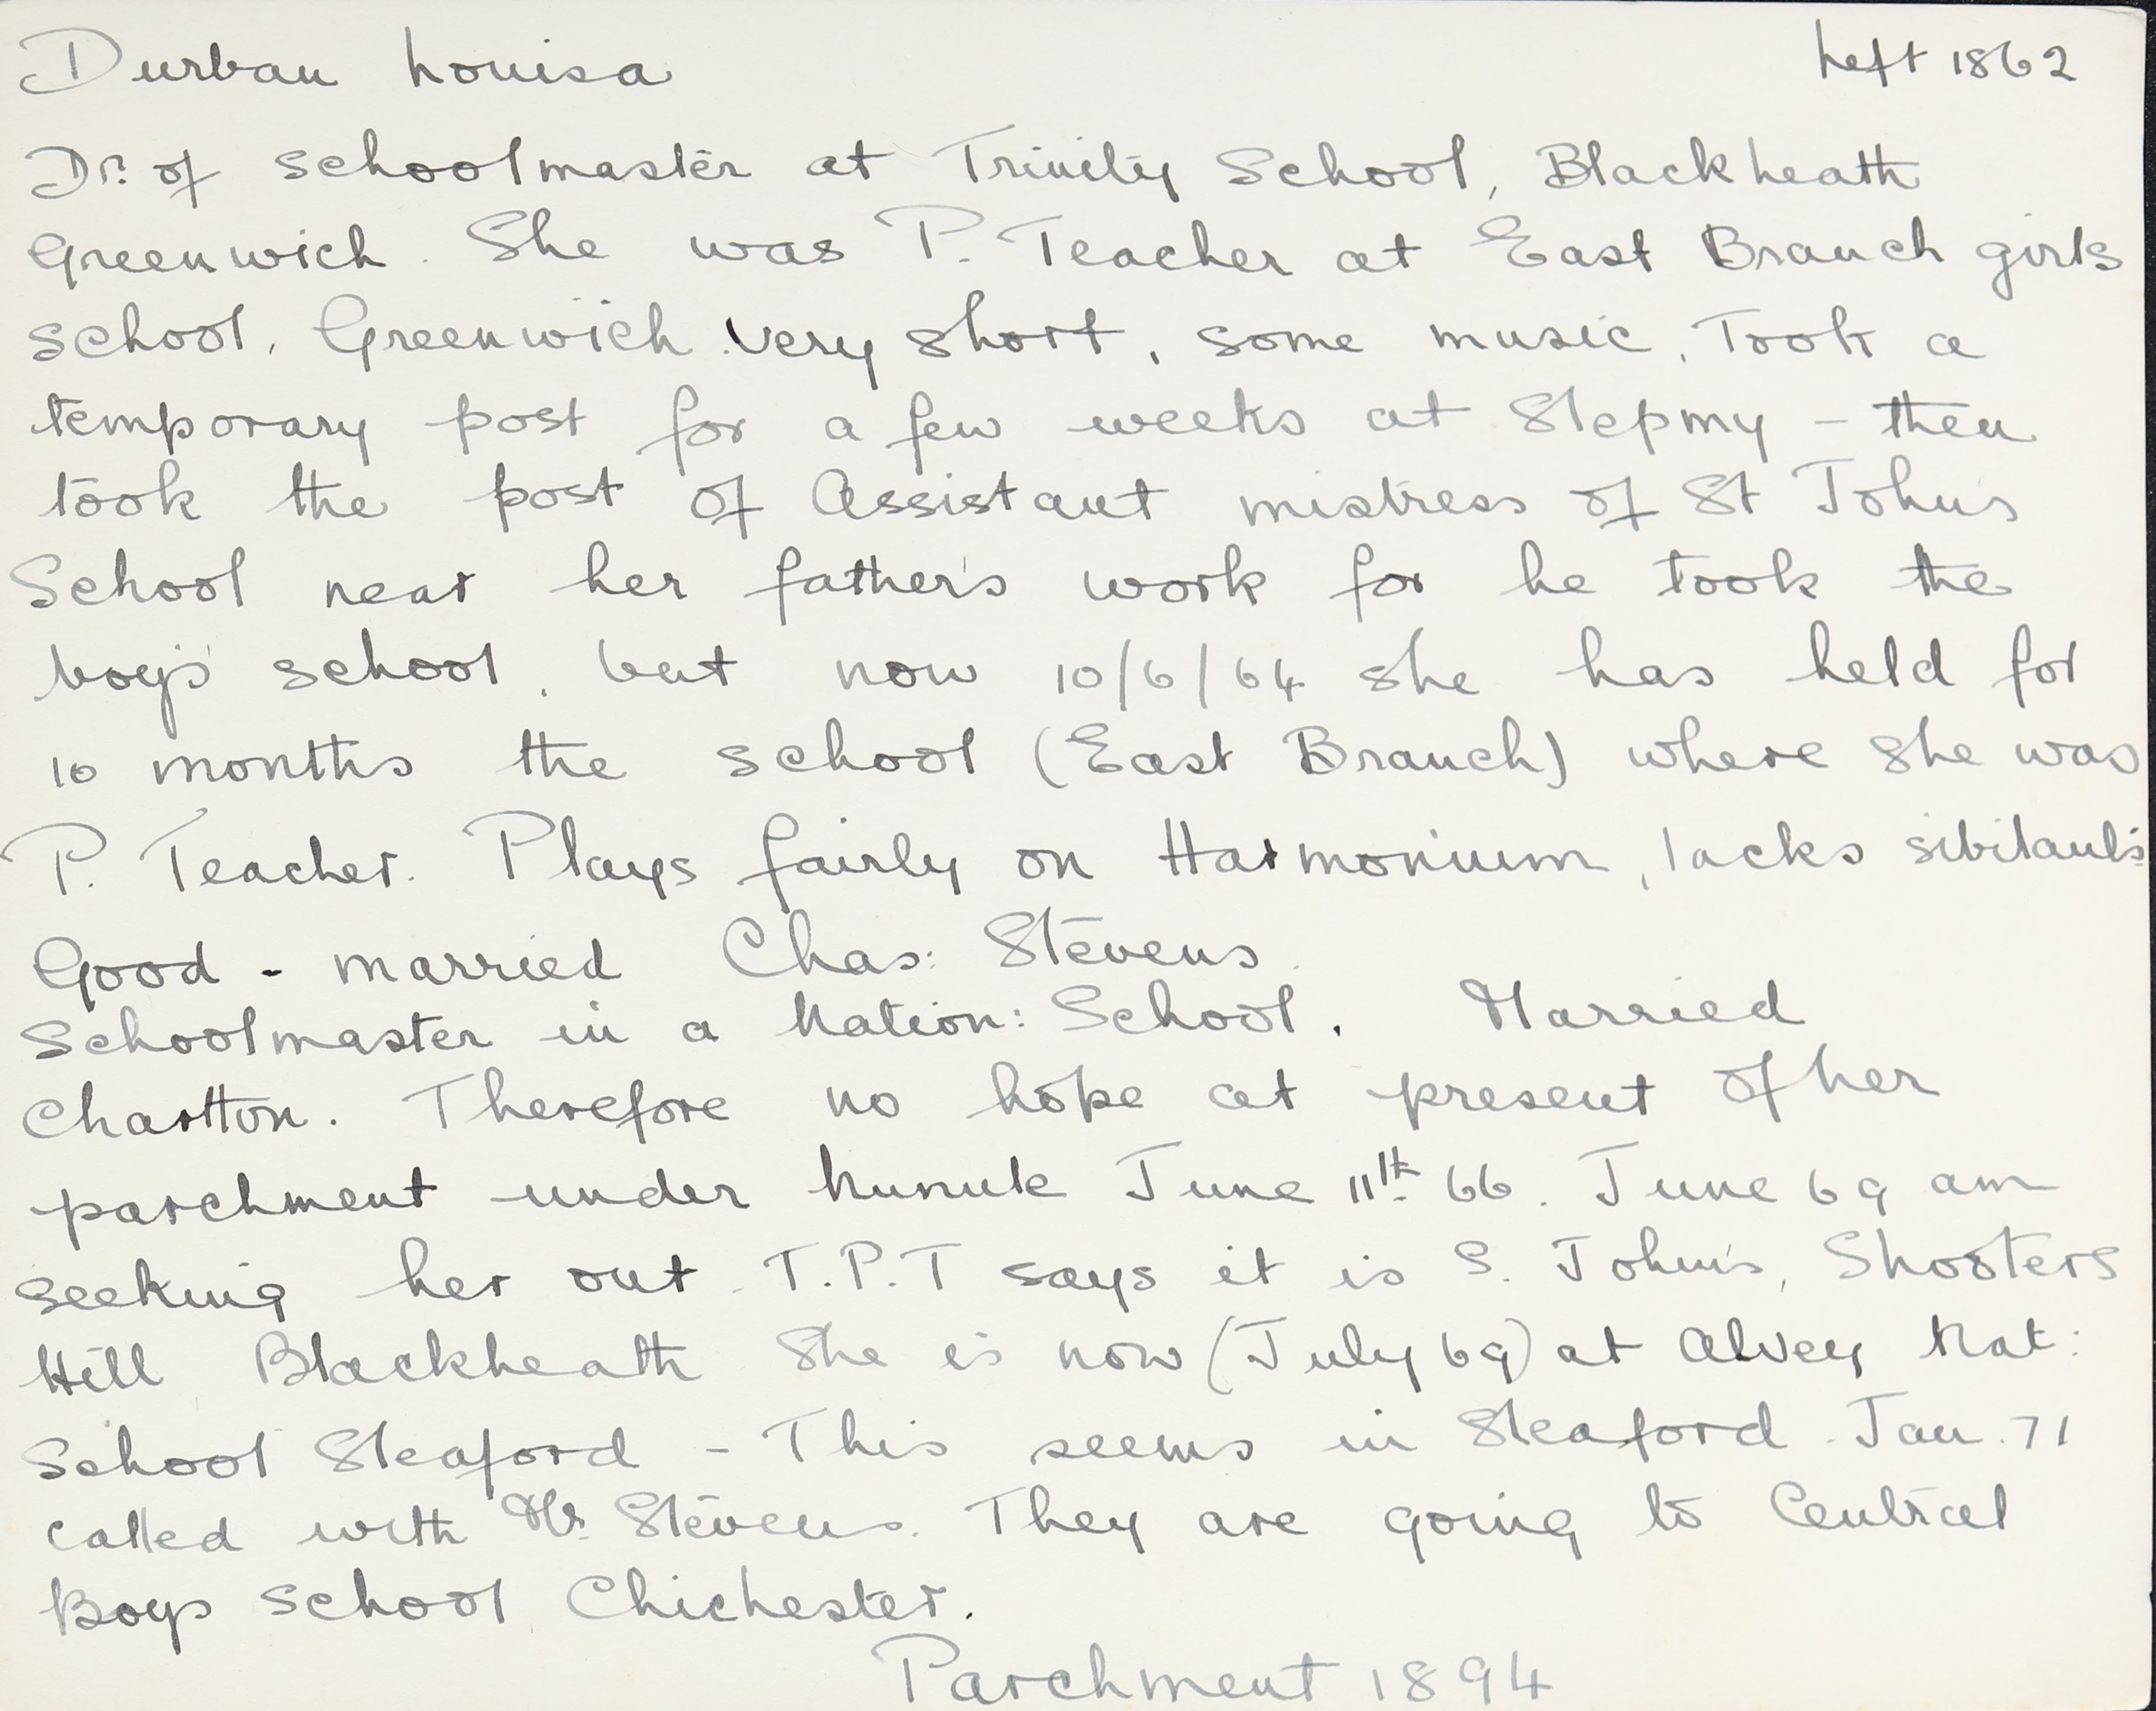 Durban Louisa Left 1862
Dr. of schoolmaster at Trinity School, Blackheath
Greenwich. She was P. Teacher at East Branch girls
school, Greenwich. Very short, some music. Took a
temporary post for a few weeks at Stepny - then
took the post of Assistant mistress of St John's
School near her father's work for he took the
boys' school, but now 10/6/64 she has held for
10 months the school (East Branch) where she was
P. Teacher. Plays fairly on Harmonium, lacks sibilants
Good - married Chas: Stevens.
Schoolmaster in a Nation: School. Married
Charlton. Therefore no hope at present of her
parchment under Minute June 11th 66. June 69 am
seeking her out. T.P.T says it is S. John's, Shooters
Hill Blackheath She is now (July 69) at Alvey Nat:
School Sleaford - This seems in Sleaford. Jan. 71
called with Mr. Stevens. They are going to Central
Boys School Chichester.
Parchment 1894